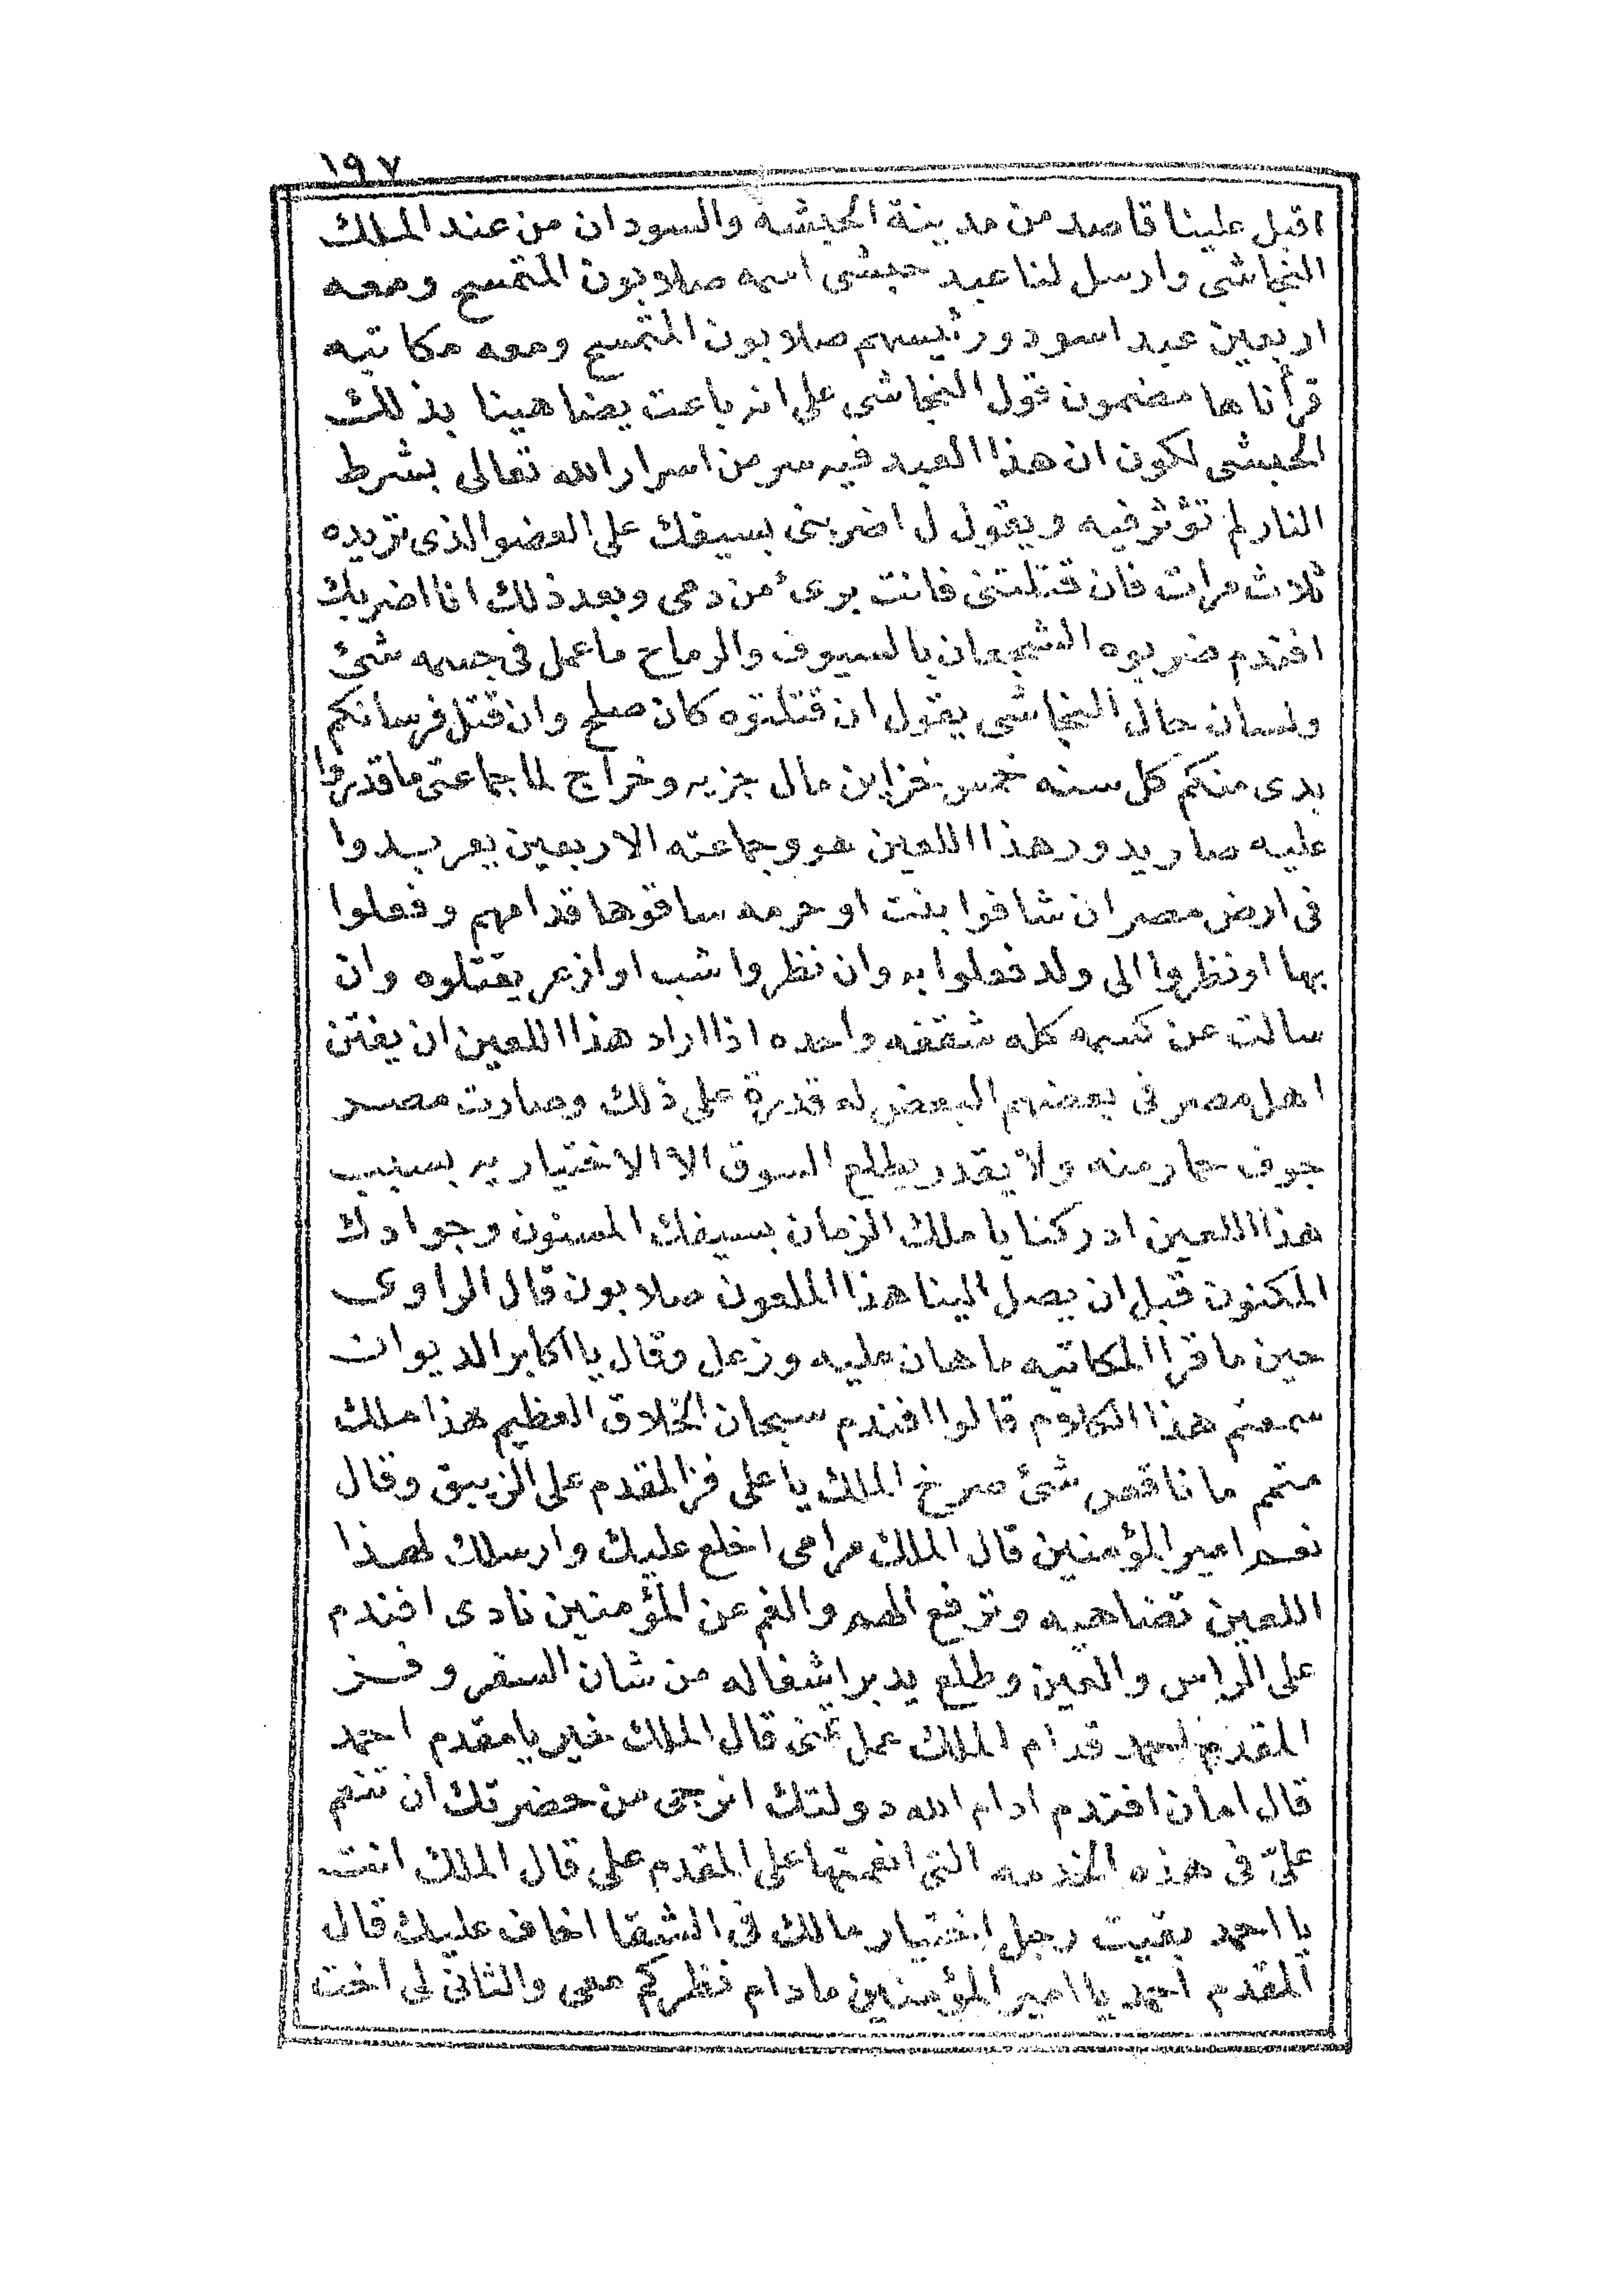 ١٩٧
اقبل علينا قاصد من مدينة الحبشه والسودان من عند الملك
النجاشى وارسل لنا عبد حبشى اسمه صلابون المتمسح ومعه
اربعين عبد اسود ورئيسهم صلابون المتمسح ومعه مكاتيه
قرأناها مضمون قول النجاشى على انه باعت يضاهينا بذلك
الحبشى لكون ان هذا العبد فيه سر من اسرار الله تعالى بشرط
النار لم تؤثر فيه ويقول ل اضربنى بسيفك على العضو الذى تريده
ثلاث مرات فان قتلتنى فانت برئ من دمى وبعد ذلك انا اضربك
افندم ضربوه الشجعان بالسيوف والرماح ما عمل فى جسمه شئ
ولسان حال النجاشى يقول ان قتلتوه كان صلح وان قتل فرسانكم
بدى منكم كل سنه خمس خزاين مال جزيه وخراج لما جماعتى ما قدروا
عليه صار يدور هذا اللعين هو وجماعته الاربعين يعربدوا
فى ارض مصر ان شافوا بنت او حرمه ساقوها قدامهم وفعلوا
بها او نظروا الى ولد فعلوا به وان نظروا شب او ازعر يقتلوه وان
سالت عن كسمه كله شقفه واحده اذا اراد هذا اللعين ان يفتن
اهل مصر فى بعضهم البعض له قدرة على ذلك وصارت مصر
جوف حار منه ولا يقدر يطلع السوق الا الاختياريه بسبب
هذا اللعين ادركنا يا ملك الزمان بسيفك المسنون وجوادك
المكنون قبل ان يصل الينا هذا الملعون صلابون قال الراوى
حين ما قرا المكاتيه ما هان عليه وزعل وقال يا اكابر الديوان
سمعتم هذا الكلام قالوا افندم سبحان الخلاق العظيم هذا ملك
متمم ما ناقص شئ صرخ الملك يا على فز المقدم على الزيبق وقال
نعم امير المؤمنين قال الملك مرامى اخلع عليك وارسلك لهذا
اللعين تضاهيه وترفع الهم والغم عن المؤمنين نادى افندم
على الراس والعين وطلع يدبر اشغاله من شان السفر وفز
المقدم احمد قدام الملك عمل تمنى قال الملك خير يا مقدم احمد
قال امان افندم ادام الله دولتك انرجى من حضرتك ان تنعم
علىّ فى هذه الخدمه التى انعمتها على المقدم على قال الملك انت
يا احمد بقيت رجل اختيار مالك فى الشقا اخاف عليك قال
المقدم احمد يا امير المؤمنين ما دام نظركم معى والثانى لى اخت